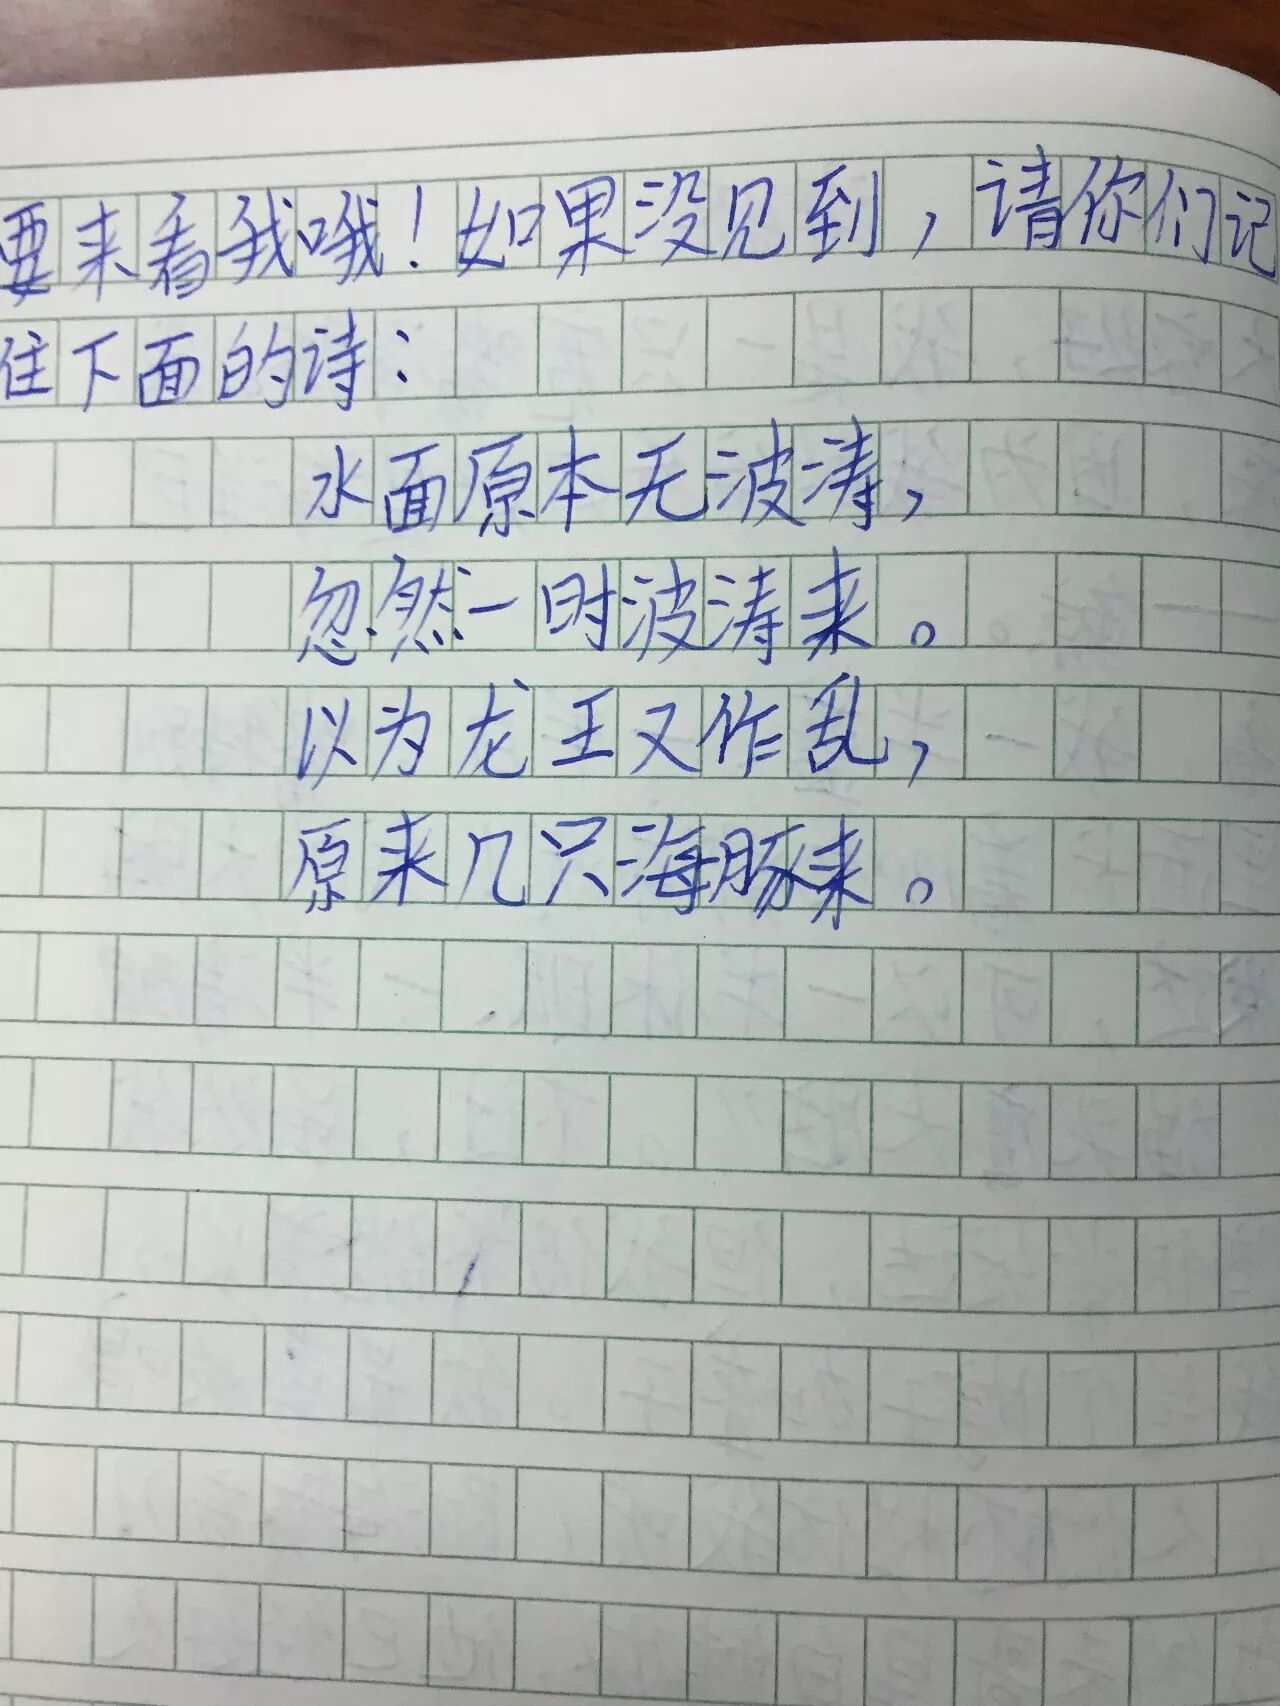 要来看我哦！如果没见到，请你们记
住下面的诗：
水面原本无波涛，
忽然一时波涛来。
以为龙王又作乱，
原来几只海豚来。